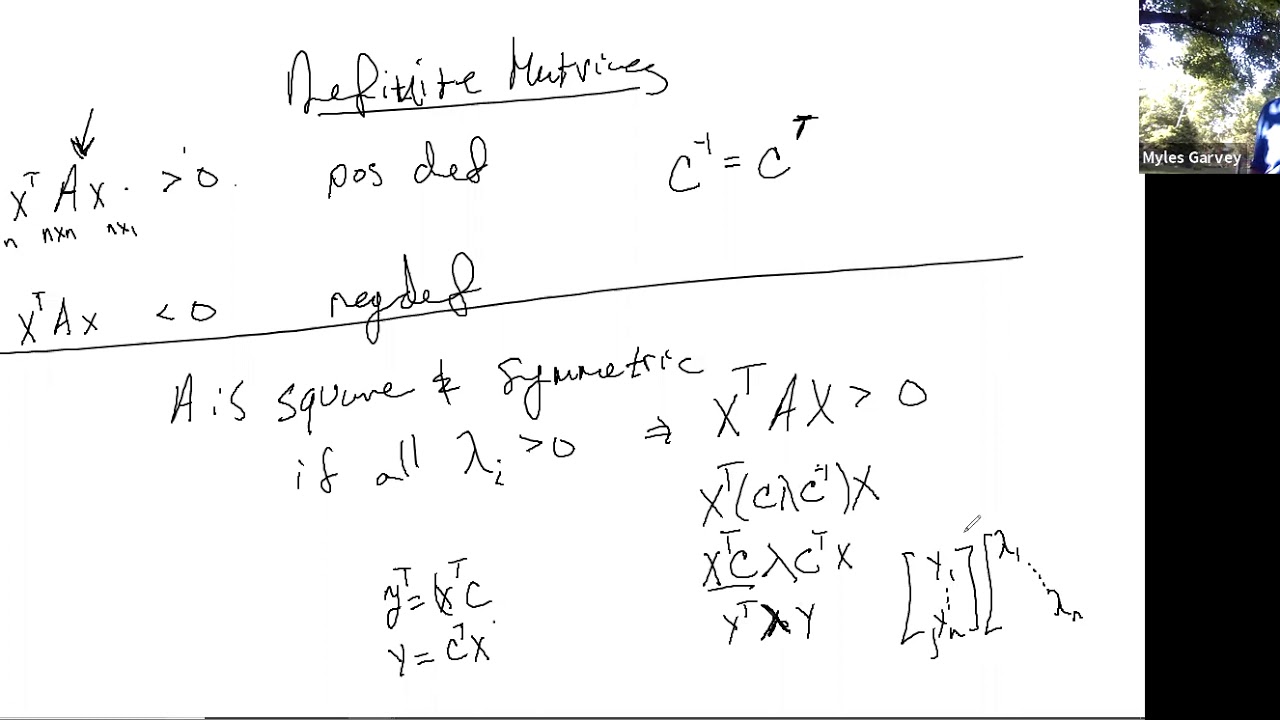 Definite Matrices
xᵀ A x > 0 pos def C⁻¹ = Cᵀ
n nxn nx1
xᵀ A x < 0 neg def
A is square & symmetric
if all λᵢ > 0 ⇒ Xᵀ A X > 0
Xᵀ(CλC⁻¹)X
XᵀCλCᵀX
yᵀ = xᵀC
Yᵀ λ Y
y = CᵀX
[y₁ ⋮ yₙ] [λ₁ ⋱ λₙ
Myles Garvey